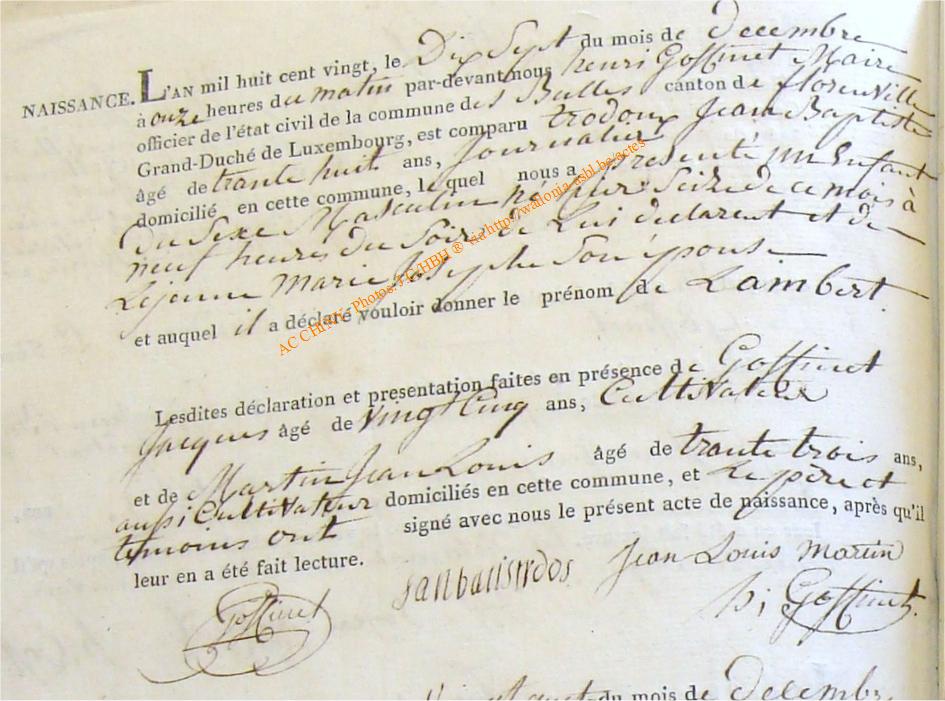 NAISSANCE. L'AN mil huit cent vingt, le Dix Sept du mois de decembre
à onze heures du matin par-devant nous henri Goffinet Maire
officier de l'état civil de la commune des Bulles canton de florenville
Grand-Duché de Luxembourg, est comparu trodoux Jean Baptiste
âgé de trante huit ans, Journalier
domicilié en cette commune, lequel nous a presenté un Enfant
du Sexe Masculin né Seize de ce mois à
neuf heures du Soir de Lui declarent et de
Lejeune Marie Josephe Son épouse
et auquel il a déclaré vouloir donner le prénom de Lambert
Lesdites déclaration et presentation faites en présence de Goffinet
Jacques âgé de vingt Cinq ans, Cultivateur
et de Martin Jean Louis âgé de trante trois ans,
aussi Cultivateur domiciliés en cette commune, et Le père et
temoins ont signé avec nous le présent acte de naissance, après qu'il
leur en a été fait lecture.
Goffinet Jean Louis Martin
h; Goffinet
du mois de decembr
AC CHINY Photos: J.G/HBH ® via http://wallonia-asbl.be/actes